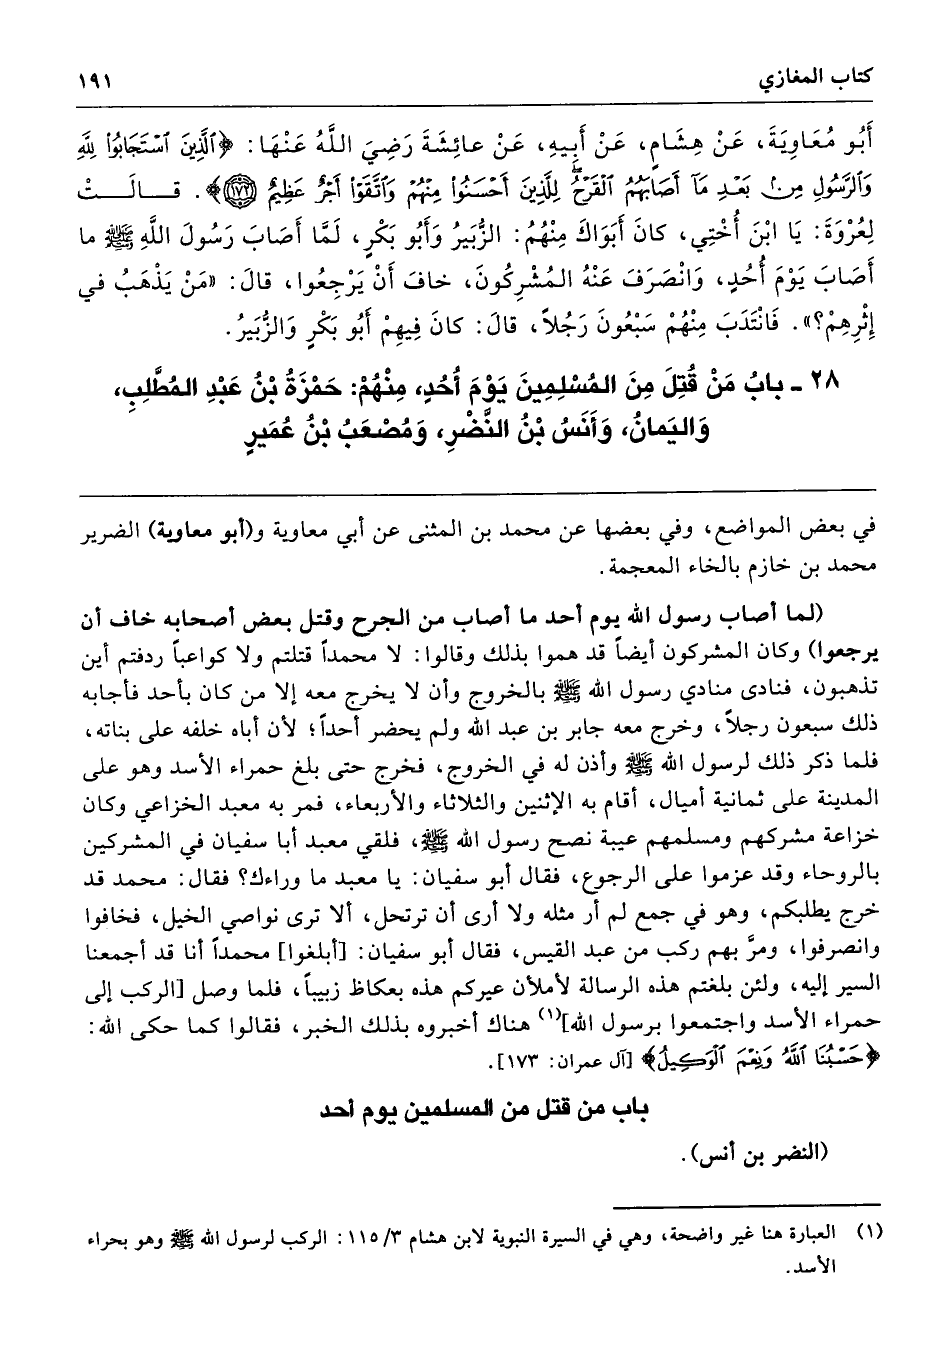 كتاب المغازي ١٩١
أَبُو مُعَاوِيَةَ، عَنْ هِشَامٍ، عَنْ أَبِيهِ، عَنْ عائِشَةَ رَضِيَ اللَّهُ عَنْهَا: ﴿ٱلَّذِينَ ٱسْتَجَابُوا۟ لِلَّهِ
وَٱلرَّسُولِ مِنۢ بَعْدِ مَآ أَصَابَهُمُ ٱلْقَرْحُ ۚ لِلَّذِينَ أَحْسَنُوا۟ مِنْهُمْ وَٱتَّقَوْا۟ أَجْرٌ عَظِيمٌ ﴿١٧٢﴾﴾. قالَتْ
لِعُرْوَةَ: يَا ابْنَ أُخْتِي، كانَ أَبَوَاكَ مِنْهُمُ: الزُّبَيرُ وَأَبُو بَكْرٍ، لَمَّا أَصَابَ رَسُولَ اللَّهِ ﷺ ما
أَصَابَ يَوْمَ أُحُدٍ، وَانْصَرَفَ عَنْهُ المُشْرِكُونَ، خافَ أَنْ يَرْجِعُوا، قالَ: «مَنْ يَذْهَبُ في
إِثْرِهِمْ؟». فَانْتَدَبَ مِنْهُمْ سَبْعُونَ رَجُلاً، قالَ: كانَ فِيهِمْ أَبُو بَكْرٍ وَالزُّبَيرُ.
٢٨ ـ بابُ مَنْ قُتِلَ مِنَ المُسْلِمِينَ يَوْمَ أُحُدٍ، مِنْهُمْ: حَمْزَةُ بْنُ عَبْدِ المُطَّلِبِ،
وَاليَمانُ، وَأَنَسُ بْنُ النَّضْرِ، وَمُصْعَبُ بْنُ عُمَيرٍ
في بعض المواضع، وفي بعضها عن محمد بن المثنى عن أبي معاوية و(أبو معاوية) الضرير
محمد بن خازم بالخاء المعجمة.
(لما أصاب رسول الله يوم أحد ما أصاب من الجرح وقتل بعض أصحابه خاف أن
يرجعوا) وكان المشركون أيضاً قد هموا بذلك وقالوا: لا محمداً قتلتم ولا كواعباً ردفتم أين
تذهبون، فنادى منادي رسول الله ﷺ بالخروج وأن لا يخرج معه إلا من كان بأحد فأجابه
ذلك سبعون رجلاً، وخرج معه جابر بن عبد الله ولم يحضر أحداً؛ لأن أباه خلفه على بناته،
فلما ذكر ذلك لرسول الله ﷺ وأذن له في الخروج، فخرج حتى بلغ حمراء الأسد وهو على
المدينة على ثمانية أميال، أقام به الإثنين والثلاثاء والأربعاء، فمر به معبد الخزاعي وكان
خزاعة مشركهم ومسلمهم عيبة نصح رسول الله ﷺ، فلقي معبد أبا سفيان في المشركين
بالروحاء وقد عزموا على الرجوع، فقال أبو سفيان: يا معبد ما وراءك؟ فقال: محمد قد
خرج يطلبكم، وهو في جمع لم أر مثله ولا أرى أن ترتحل، ألا ترى نواصي الخيل، فخافوا
وانصرفوا، ومرَّ بهم ركب من عبد القيس، فقال أبو سفيان: [أبلغوا] محمداً أنا قد أجمعنا
السير إليه، ولئن بلغتم هذه الرسالة لأملأن عيركم هذه بعكاظ زبيباً، فلما وصل [الركب إلى
حمراء الأسد واجتمعوا برسول الله](١) هناك أخبروه بذلك الخبر، فقالوا كما حكى الله:
﴿حَسْبُنَا ٱللَّهُ وَنِعْمَ ٱلْوَكِيلُ﴾ [آل عمران: ١٧٣].
باب من قتل من المسلمين يوم أحد
(النضر بن أنس).
(١) العبارة هنا غير واضحة، وهي في السيرة النبوية لابن هشام ٣/ ١١٥: الركب لرسول الله ﷺ وهو بحراء
الأسد.